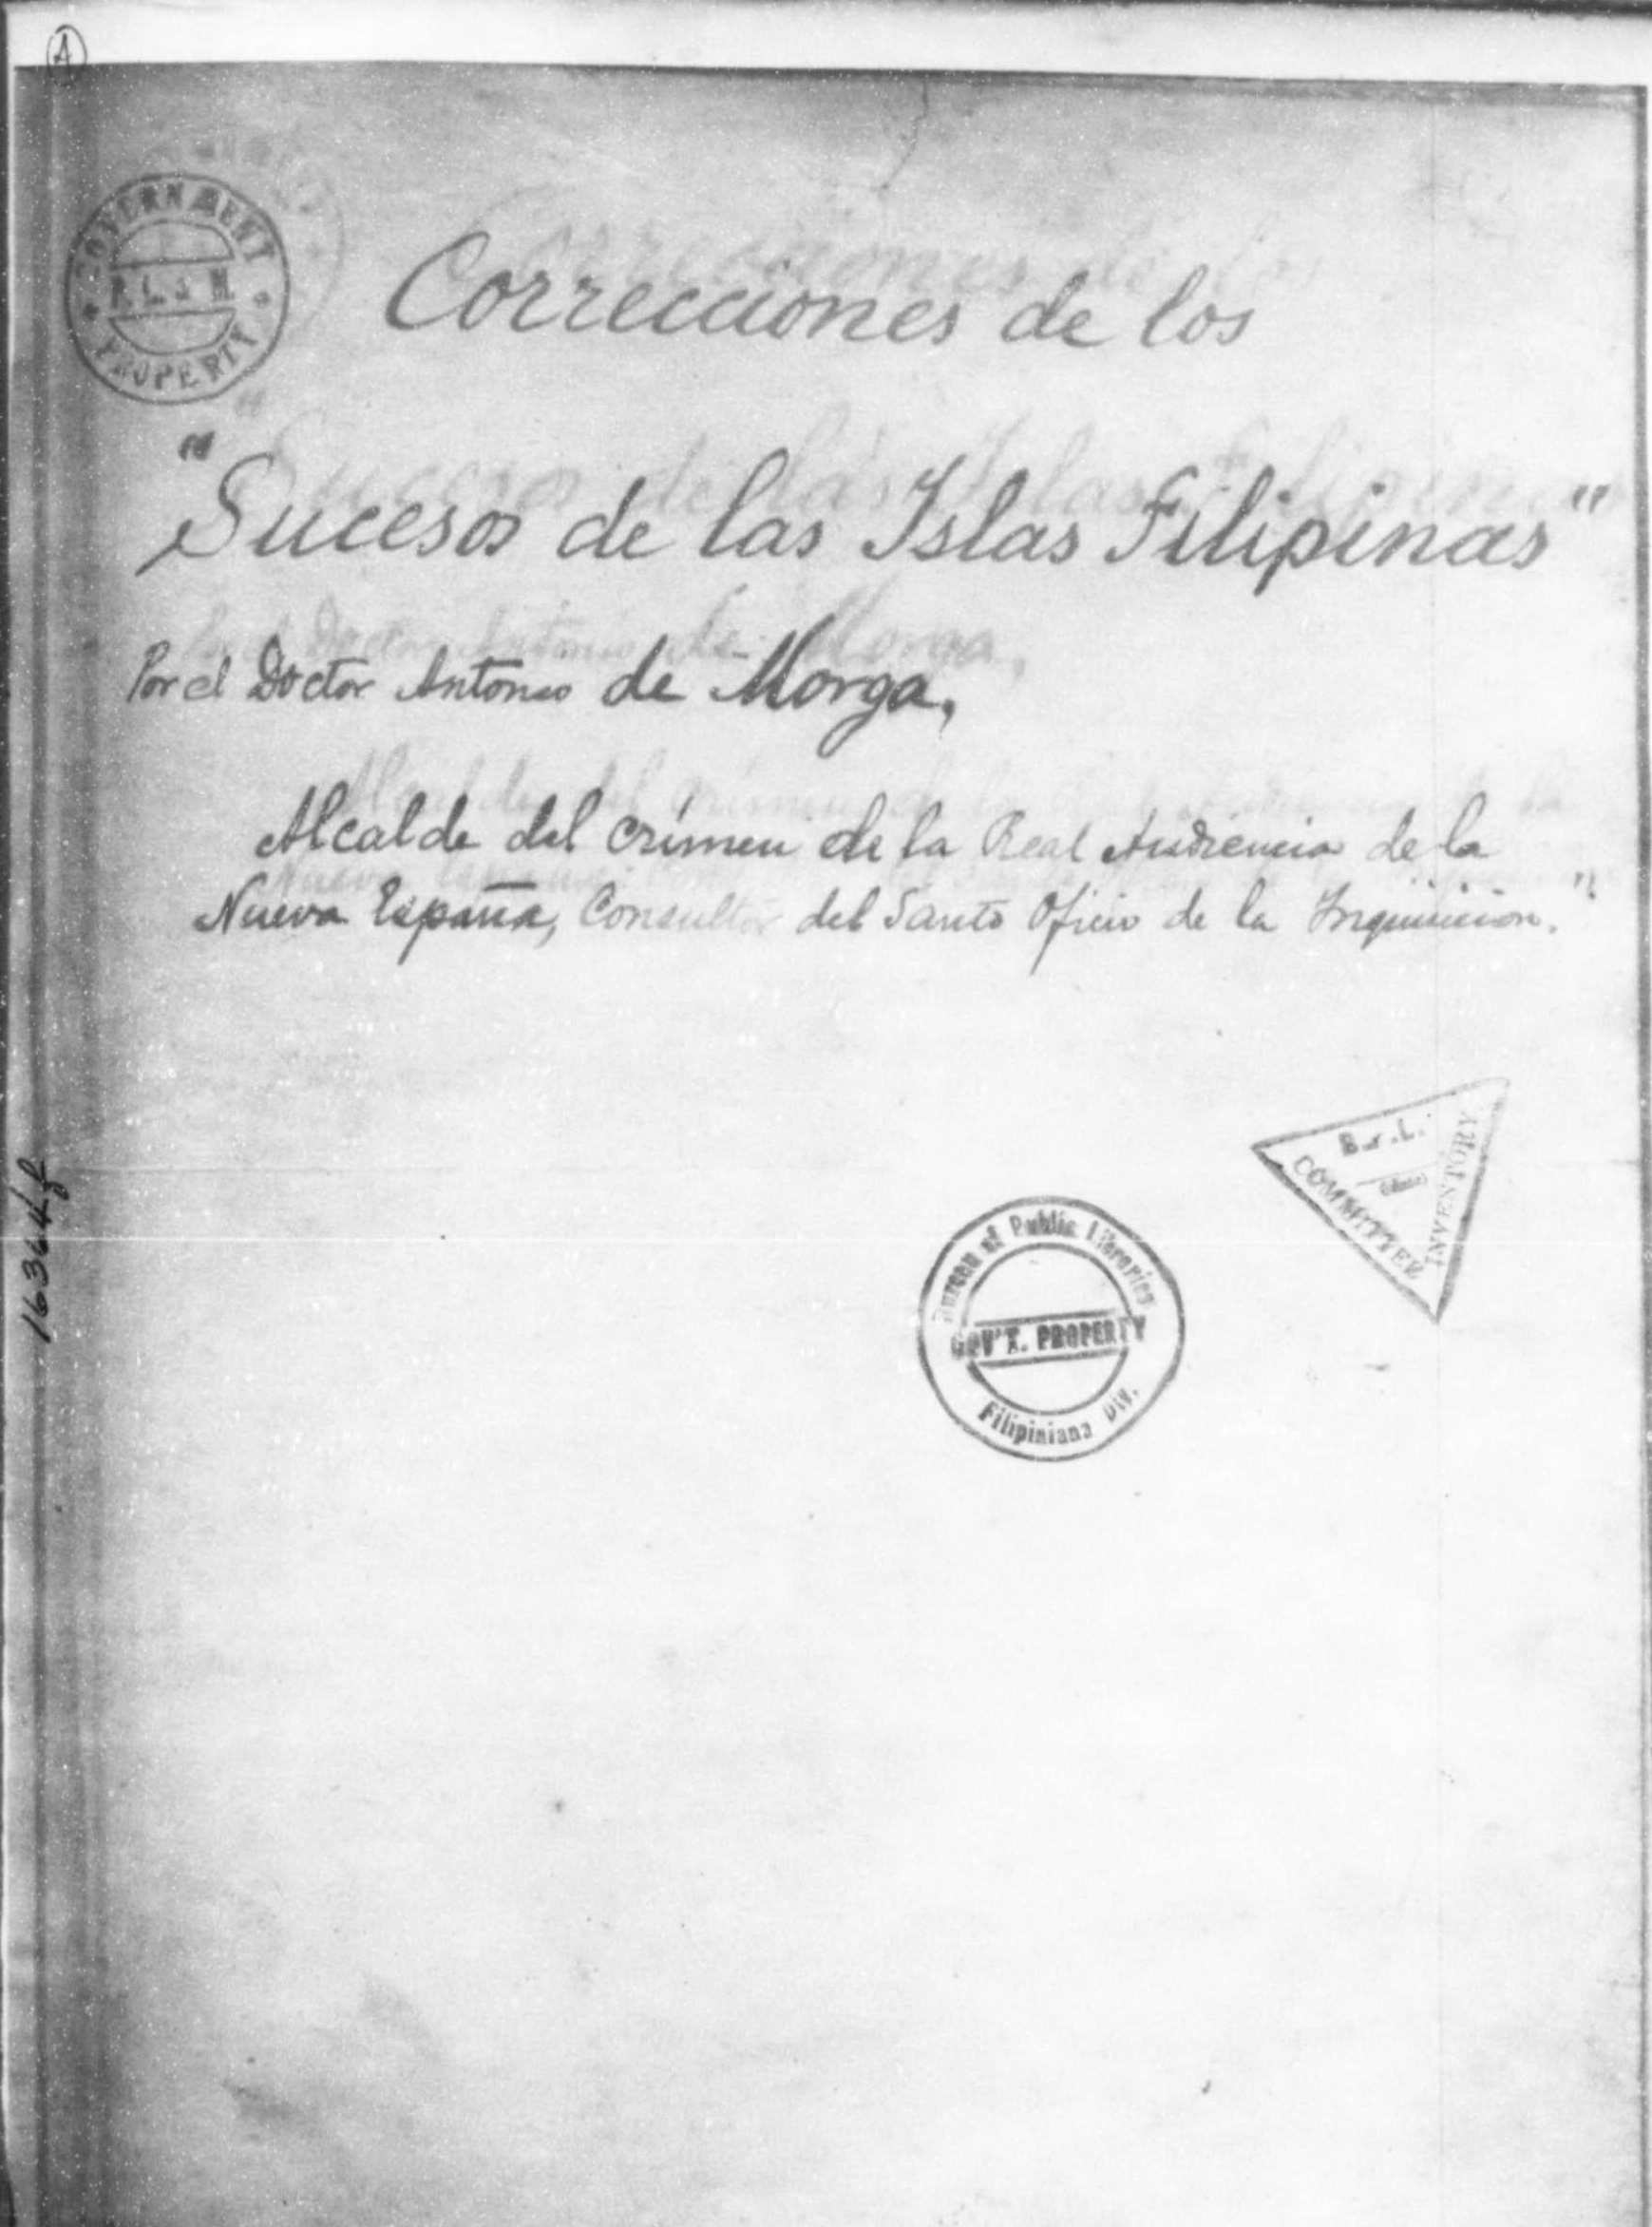 A
GOVERNMENT
P. L. & M.
PROPERTY
Correcciones de los
"Sucesos de las Islas Filipinas"
Por el Doctor Antonio de Morga,
Alcalde del crímen de la Real Audiencia de la
Nueva España, Consultor del Santo Oficio de la Inquisicion."
B.P.L.
COMMITTEE
INVENTORY
Bureau of Public Libraries
GOV'T. PROPERTY
Filipiniana Div.